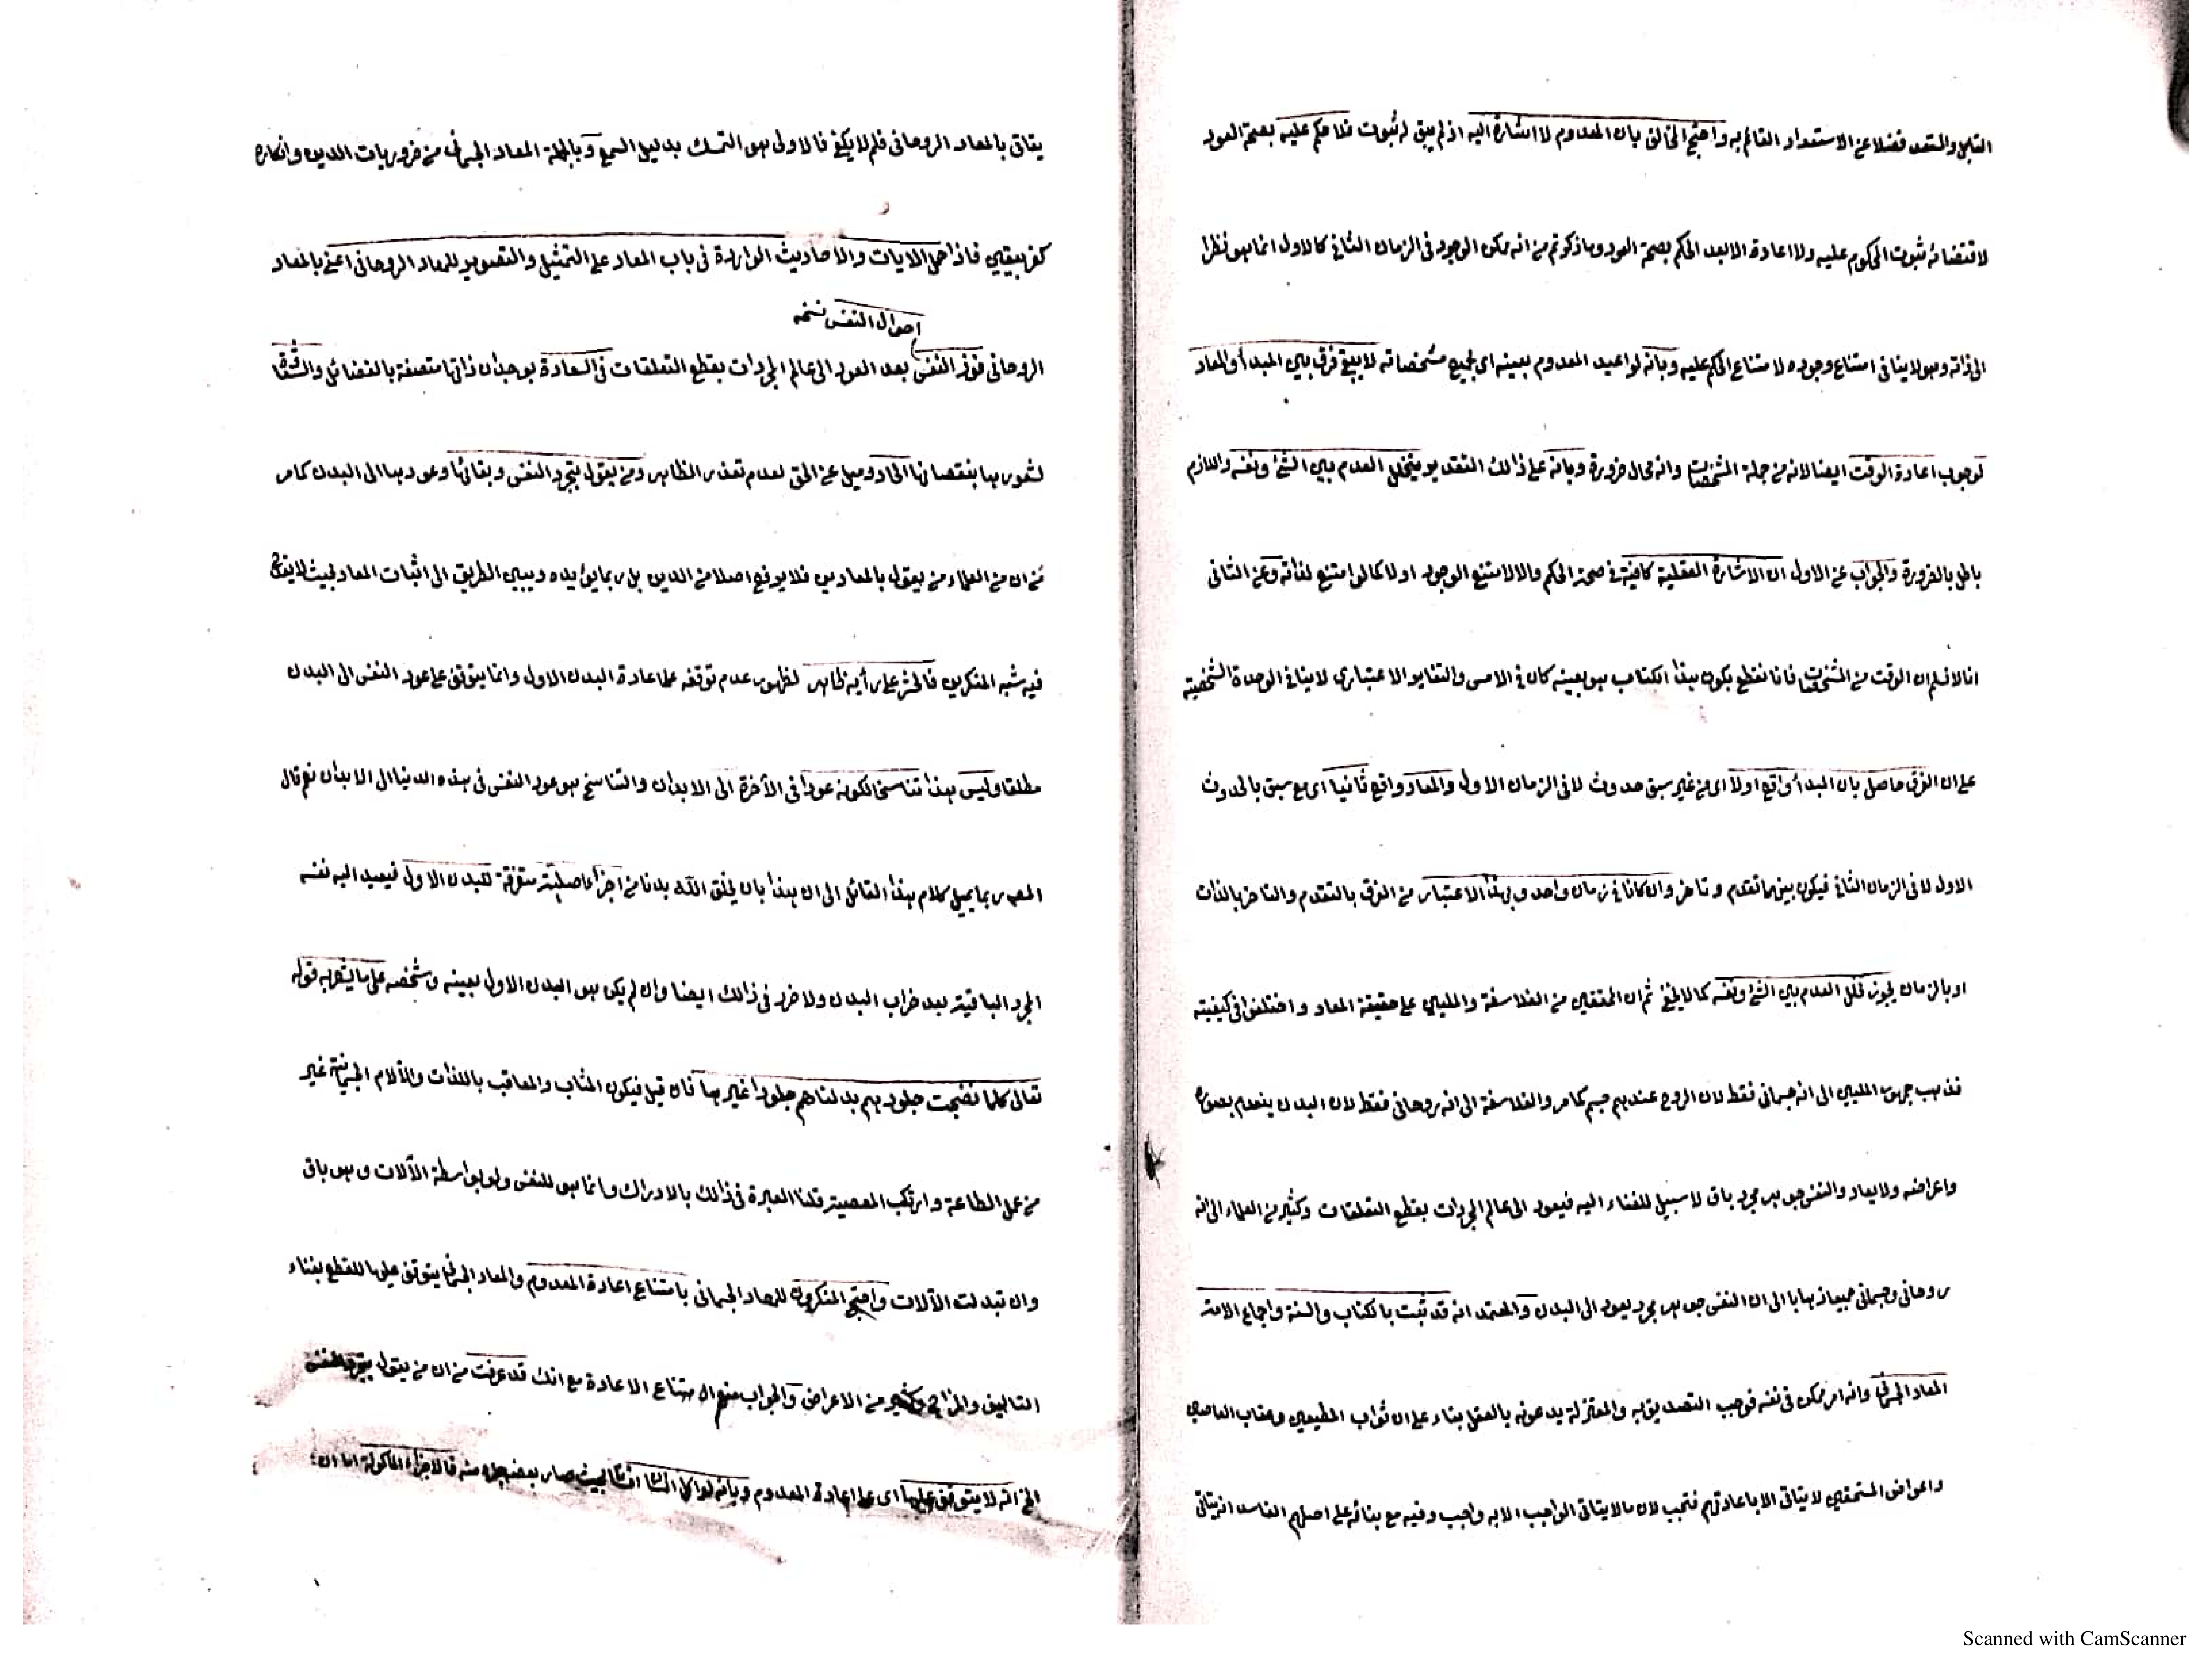 القبل والمتقدم فضلا عن الاستعداد القائم به واحتج المخالف بان المعدوم لا اشارة اليه اذ لم يبق له ثبوت فلا حكم عليه بصحة العود
لاقتضائه ثبوت المحكوم عليه ولا اعادة الا بعد الحكم بصحة العود وما ذكرتم من انه ممكن الوجود في الزمان الثاني كالاول انما هو نظرا
الى ذاته وهو لا ينافي امتناع وجوده لامتناع الحكم عليه وبانه لو اعيد المعدوم بعينه اى بجميع مشخصاته لا يبقى فرق بين المبدأ والمعاد
لوجوب اعادة الوقت ايضا لانه من جملة المشخصات وانه محال ضرورة وبانه على ذلك التقدير يتخلل العدم بين الشئ ونفسه واللازم
باطل بالضرورة والجواب عن الاول ان الاشارة العقلية كافية في صحة الحكم والا لامتنع الوجود اولا كما لو امتنع لذاته وعن الثاني
انا لا نسلم ان الوقت من المشخصات فانا نقطع بكون هذا الكتاب هو بعينه كان في الامس والتغاير الاعتباري لا ينافي الوحدة الشخصية
على ان الفرق حاصل بان المبدأ واقع اولا اى من غير سبق حدوث لا في الزمان الاول والمعاد واقع ثانيا اى مع سبق بالحدوث
الاول لا في الزمان الثاني فيكون بينهما تقدم وتاخر وان كانا في زمان واحد وبهذا الاعتبار من الفرق بالتقدم والتاخر بالذات
او بالزمان يجوز تخلل العدم بين الشئ ونفسه كما لا يخفى ثم ان المحققين من الفلاسفة والمليين على حقيقة المعاد واختلفوا في كيفيته
فذهب جمهور المليين الى انه جسماني فقط لان الروح عندهم جسم كما مر والفلاسفة الى انه روحاني فقط لان البدن ينعدم بصوره
واعراضه ولا يعاد والنفس جوهر مجرد باق لا سبيل للفناء اليه فيعود الى عالم المجردات بقطع التعلقات وكثير من العلماء الى انه
روحاني وجسماني جميعا ذهابا الى ان النفس جوهر مجرد يعود الى البدن والمعتمد انه قد ثبت بالكتاب والسنة واجماع الامة
المعاد الجسماني وانه امر ممكن في نفسه فوجب التصديق به والمعتزلة يدعونه بالعقل بناء على ان ثواب المطيعين وعقاب العاصين
واعواض المستحقين لا يتاتى الا باعادتهم فتجب لان ما لا يتاتى الواجب الا به واجب وفيه مع بنائه على اصلهم الفاسد انه يتاتى
يتاتى بالمعاد الروحاني فلم لا يكفي فالاولى هو التمسك بدليل السمع وبالجملة المعاد الجسماني من ضروريات الدين وانكاره
كفر بيقين فاذا حمل الايات والاحاديث الواردة في باب المعاد على التمثيل والتصوير للمعاد الروحاني اعني بالمعاد
احوال النفس نسخه
الروحاني فوز النفس بعد العود الى عالم المجردات بقطع التعلقات في السعادة بوجدان ذاتها متصفة بالفضائل والشقا
لشعورها بنقصانها الحاد وميل عن الحق لعدم تعذر الظاهر ومن يقول بتجرد النفس وبقائها وعودها الى البدن كما مر
من ان من العلماء من يقول بالمعادين فلا يرفع اصلا من الدين بل ربما يؤيده ويبين الطريق الى اثبات المعاد بحيث لا يقدح
فيه شبه المنكرين فالحشر على رأيه ظاهر لظهور عدم توقفه على اعادة البدن الاول وانما يتوقف على عود النفس الى البدن
مطلقا وليس هذا تناسخا لكونه عودا في الآخرة الى الابدان والتناسخ هو عود النفس في هذه الدنيا الى الابدان نعم قال
المص ربما يميل كلام هذا القائل الى ان هذا بان يخلق الله بدنا من اجزاء اصلية متفرقة للبدن الاول فيعيد اليه نفسه
المجرد الباقية بعد خراب البدن ولا ضرر في ذلك ايضا وان لم يكن هو البدن الاول بعينه وشخصه على ما يشعر به قوله
تعالى كلما نضجت جلودهم بدلناهم جلودا غيرها فان قيل فيكون المثاب والمعاقب باللذات والآلام الجسمانية غير
من عمل الطاعة وارتكب المعصية قلنا العبرة في ذلك بالادراك وانما هو للنفس ولو بواسطة الآلات وهو باق
وان تبدلت الآلات واحتج المنكرون للمعاد الجسماني بامتناع اعادة المعدوم والمعاد الجسماني يتوقف عليها للقطع بفناء
التاليف والمزاج وكثير من الاعراض والجواب منع امتناع الاعادة مع انك قد عرفت من ان من يقول بتجرد النفس
الخ انه لا يتوقف عليها اى على اعادة المعدوم وبانه لو اكل انسان انسانا بحيث صار بعضه جزء منه فالاجزاء المأكولة اما ان
Scanned with CamScanner